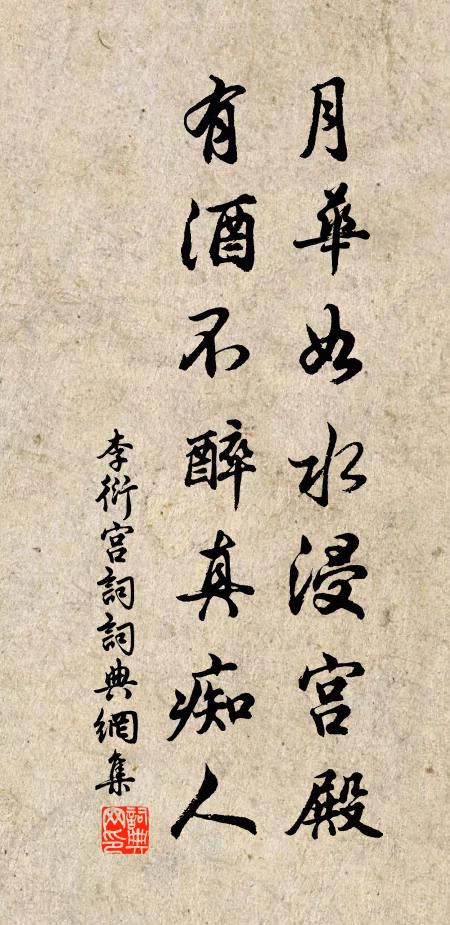 月華如水浸宮殿
有酒不醉真痴人
李衍宮詞詞典網集
詞典网印